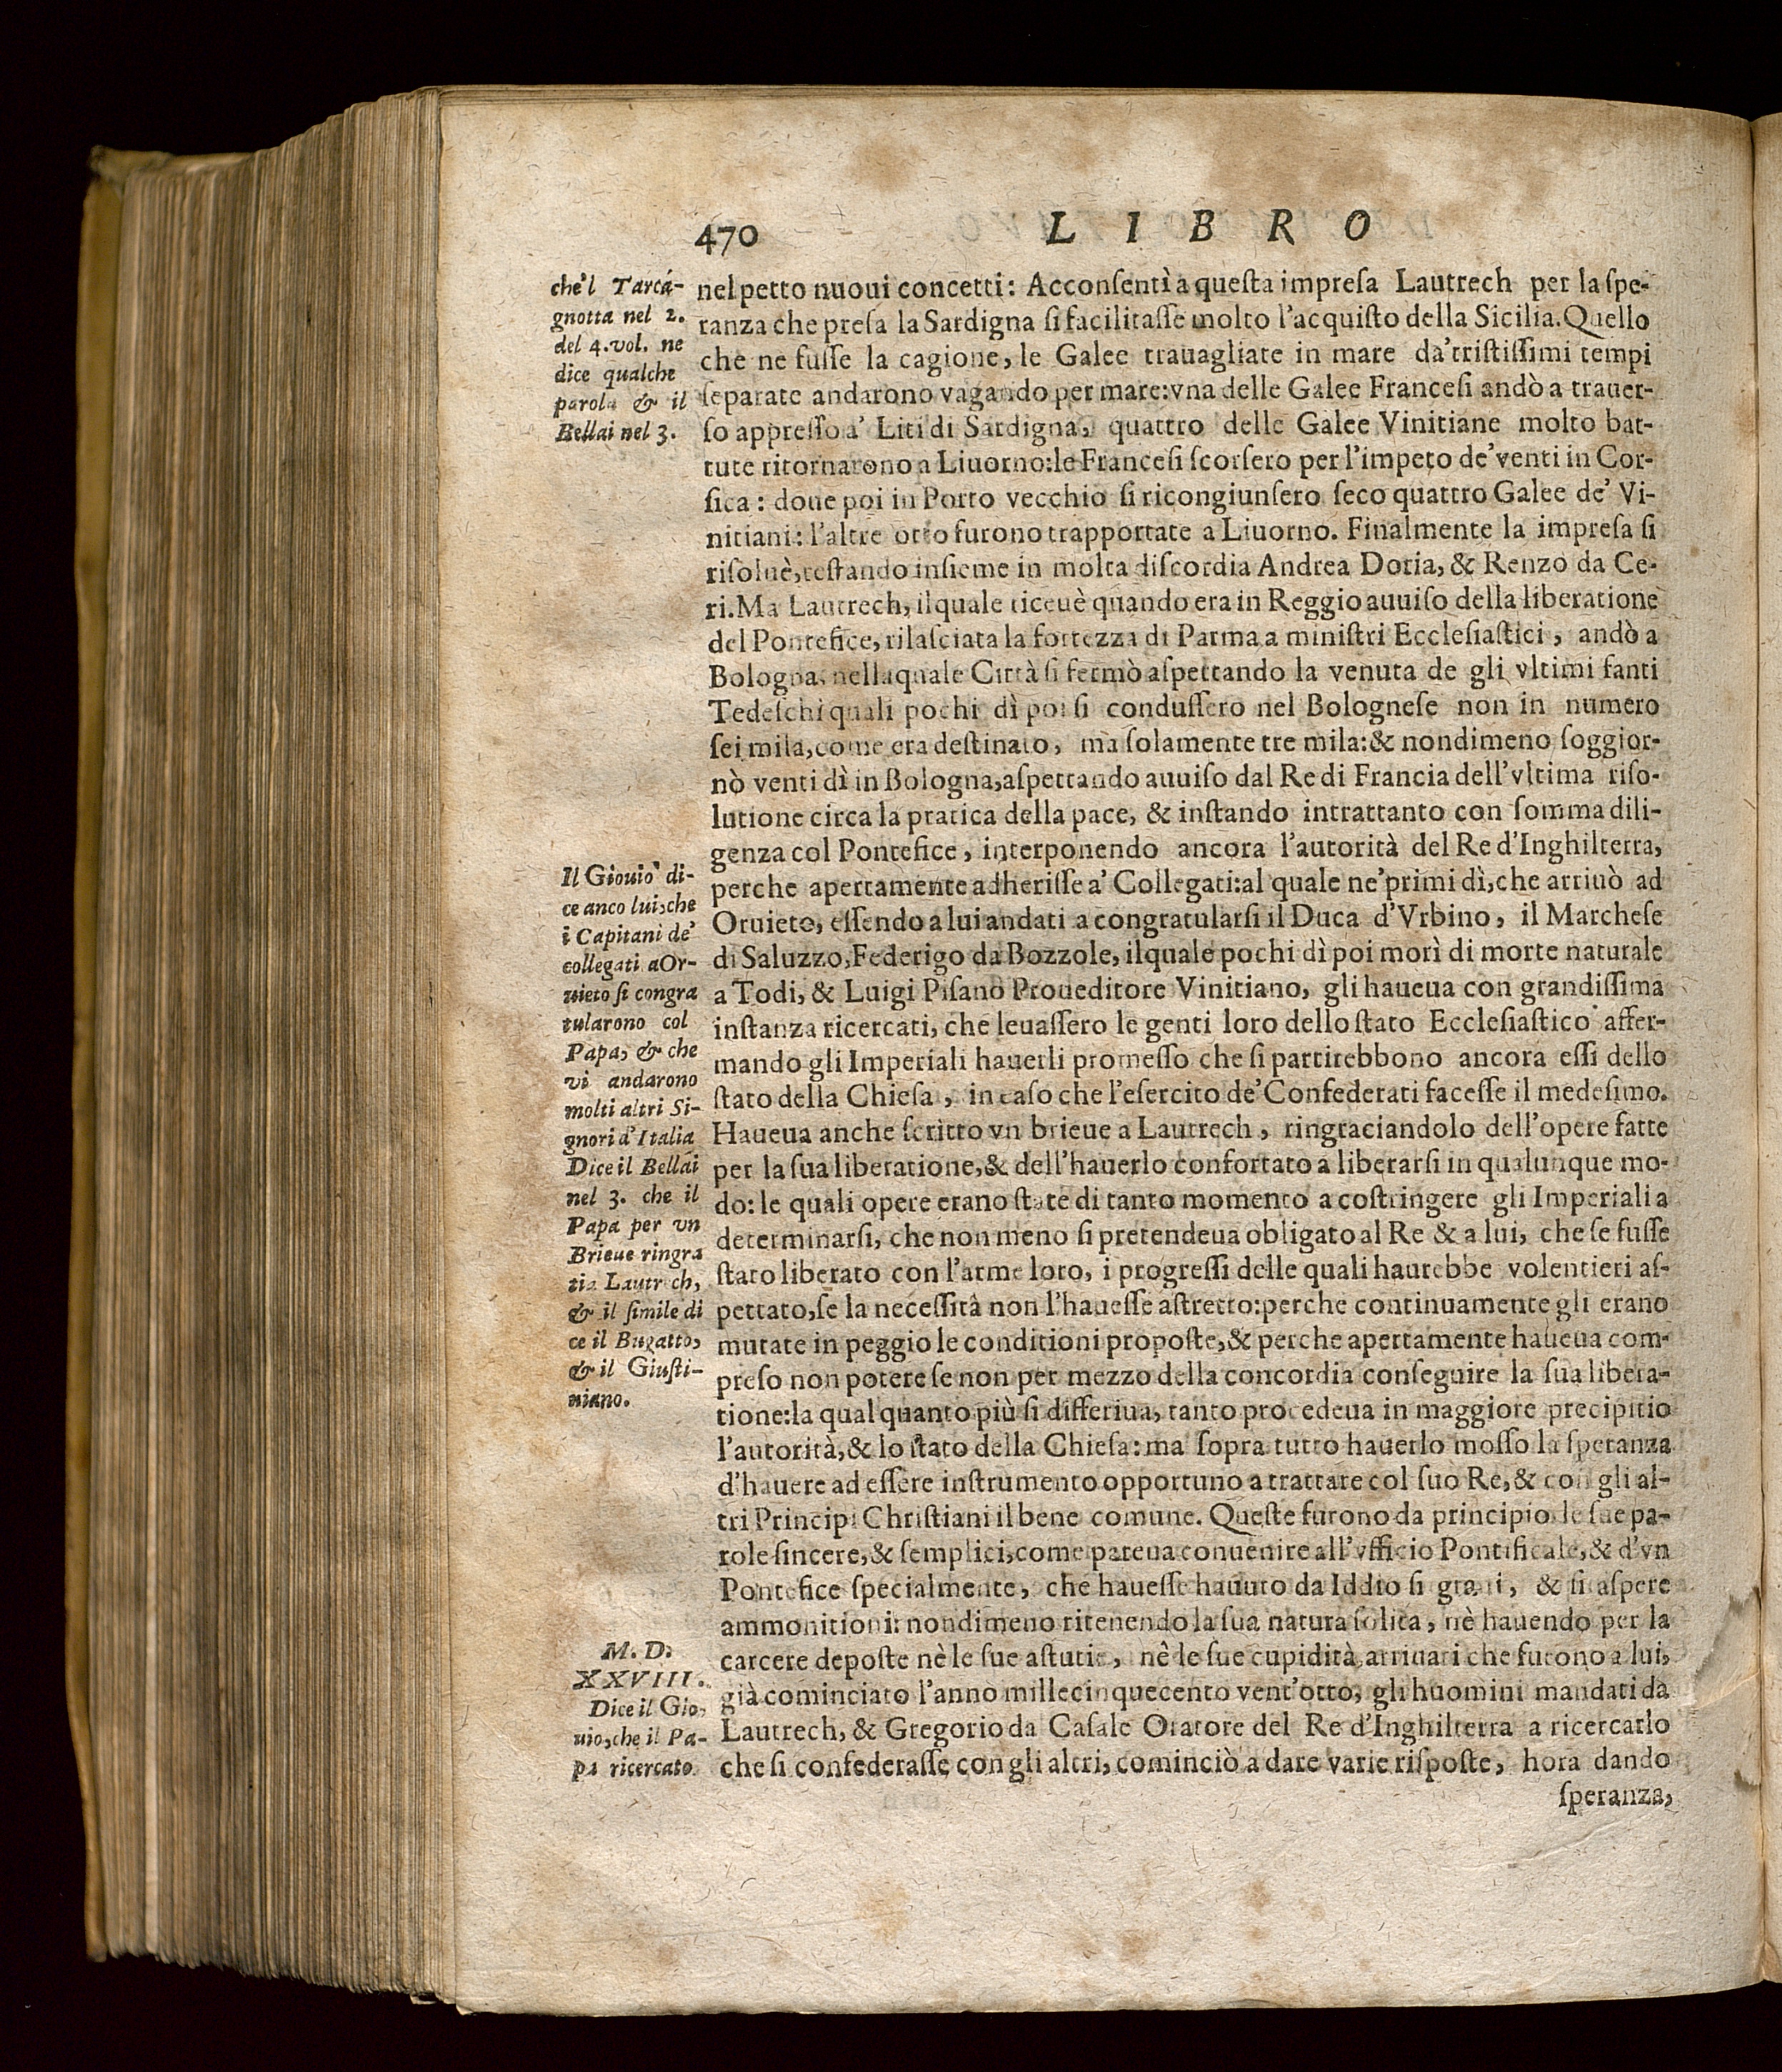 470 LIBRO
che'l Tarca-
gnotta nel 2.
del 4. vol. ne
dice qualche
parola & il
Bellai nel 3.
nel petto nuoui concetti: Acconſentì a queſta impreſa Lautrech per la ſpe-
ranza che preſa la Sardigna ſi facilitaſſe molto l'acquiſto della Sicilia. Quello
che ne fuſſe la cagione, le Galee trauagliate in mare da' triſtiſſimi tempi
ſeparate andarono vagando per mare: vna delle Galee Franceſi andò a trauer-
ſo appreſſo a' Liti di Sardigna, quattro delle Galee Vinitiane molto bat-
tute ritornarono a Liuorno: le Franceſi ſcorſero per l'impeto de' venti in Cor-
ſica: doue poi in Porto vecchio ſi ricongiunſero ſeco quattro Galee de' Vi-
nitiani: l'altre otto furono trapportate a Liuorno. Finalmente la impreſa ſi
riſoluè, reſtando inſieme in molta diſcordia Andrea Doria, & Renzo da Ce-
ri. Ma Lautrech, ilquale riceuè quando era in Reggio auuiſo della liberatione
del Pontefice, rilaſciata la fortezza di Parma a miniſtri Eccleſiaſtici, andò a
Bologna, nellaquale Città ſi fermò aſpettando la venuta de gli vltimi fanti
Tedeſchi quali pochi dì poi ſi conduſſero nel Bologneſe non in numero
ſei mila, come era deſtinato, ma ſolamente tre mila: & nondimeno ſoggior-
nò venti dì in Bologna, aſpettando auuiſo dal Re di Francia dell'vltima riſo-
lutione circa la pratica della pace, & inſtando intrattanto con ſomma dili-
genza col Pontefice, interponendo ancora l'autorità del Re d'Inghilterra,
perche apertamente adheriſſe a' Collegati: al quale ne' primi dì, che arriuò ad
Oruieto, eſſendo a lui andati a congratularſi il Duca d'Vrbino, il Marcheſe
di Saluzzo, Federigo da Bozzole, ilquale pochi dì poi morì di morte naturale
a Todi, & Luigi Piſano Proueditore Vinitiano, gli haueua con grandiſſima
inſtanza ricercati, che leuaſſero le genti loro dello ſtato Eccleſiaſtico affer-
mando gli Imperiali hauerli promeſſo che ſi partirebbono ancora eſſi dello
ſtato della Chieſa, in caſo che l'eſercito de' Confederati faceſſe il medeſimo.
Haueua anche ſcritto vn brieue a Lautrech, ringraciandolo dell'opere fatte
per la ſua liberatione, & dell'hauerlo confortato a liberarſi in qualunque mo-
do: le quali opere erano ſtate di tanto momento a coſtringere gli Imperiali a
determinarſi, che non meno ſi pretendeua obligato al Re & a lui, che ſe fuſſe
ſtato liberato con l'arme loro, i progreſſi delle quali haurebbe volentieri aſ-
pettato, ſe la neceſſità non l'haueſſe aſtretto: perche continuamente gli erano
mutate in peggio le conditioni propoſte, & perche apertamente haueua com-
preſo non potere ſe non per mezzo della concordia conſeguire la ſua libera-
tione: la qual quanto più ſi differiua, tanto procedeua in maggiore precipitio
l'autorità, & lo ſtato della Chieſa: ma ſopra tutto hauerlo moſſo la ſperanza
d'hauere ad eſſere inſtrumento opportuno a trattare col ſuo Re, & con gli al-
tri Principi Chriſtiani il bene comune. Queſte furono da principio le ſue pa-
role ſincere, & ſemplici, come pareua conuenire all'vfficio Pontificale, & d'vn
Pontefice ſpecialmente, che haueſſe hauuto da Iddio ſi graui, & ſi aſpere
ammonitioni: nondimeno ritenendo la ſua natura ſolita, nè hauendo per la
carcere depoſte nè le ſue aſtutie, nè le ſue cupidità, arriuati che furono a lui,
già cominciato l'anno millecinquecento vent'otto, gli huomini mandati da
Lautrech, & Gregorio da Caſale Oratore del Re d'Inghilterra a ricercarlo
che ſi confederaſſe con gli altri, cominciò a dare varie riſpoſte, hora dando
ſperanza,
Il Giouio di-
ce anco lui, che
i Capitani de'
collegati a Or-
uieto ſi congra
tularono col
Papa, & che
vi andarono
molti altri Si-
gnori d'Italia
Dice il Bellai
nel 3. che il
Papa per vn
Brieue ringra
tia Lautrech,
& il ſimile di
ce il Bugatto,
& il Giuſti-
niano.
M. D.
XXVIII.
Dice il Gio-
uio, che il Pa-
pa ricercato